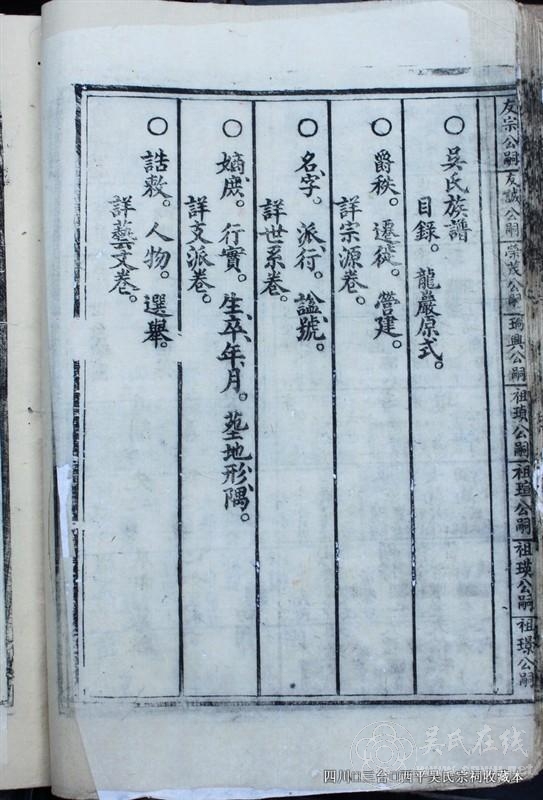 友宗公嗣
友誠公嗣
榮茂公嗣
瑀興公嗣
祖瓚公嗣
祖瑄公嗣
祖瑛公嗣
祖璟公嗣
○吳氏族譜
目錄。龍巖原式。
○爵秩。遷徙。營建。
詳宗源卷。
○名字。派行。謚號。
詳世系卷。
○嫡庶。行實。生卒年月。塋地形隅。
詳支派卷。
○誥敕。人物。選舉。
詳藝文卷。
吴氏在线
四川□三台□西平吴氏宗祠收藏本